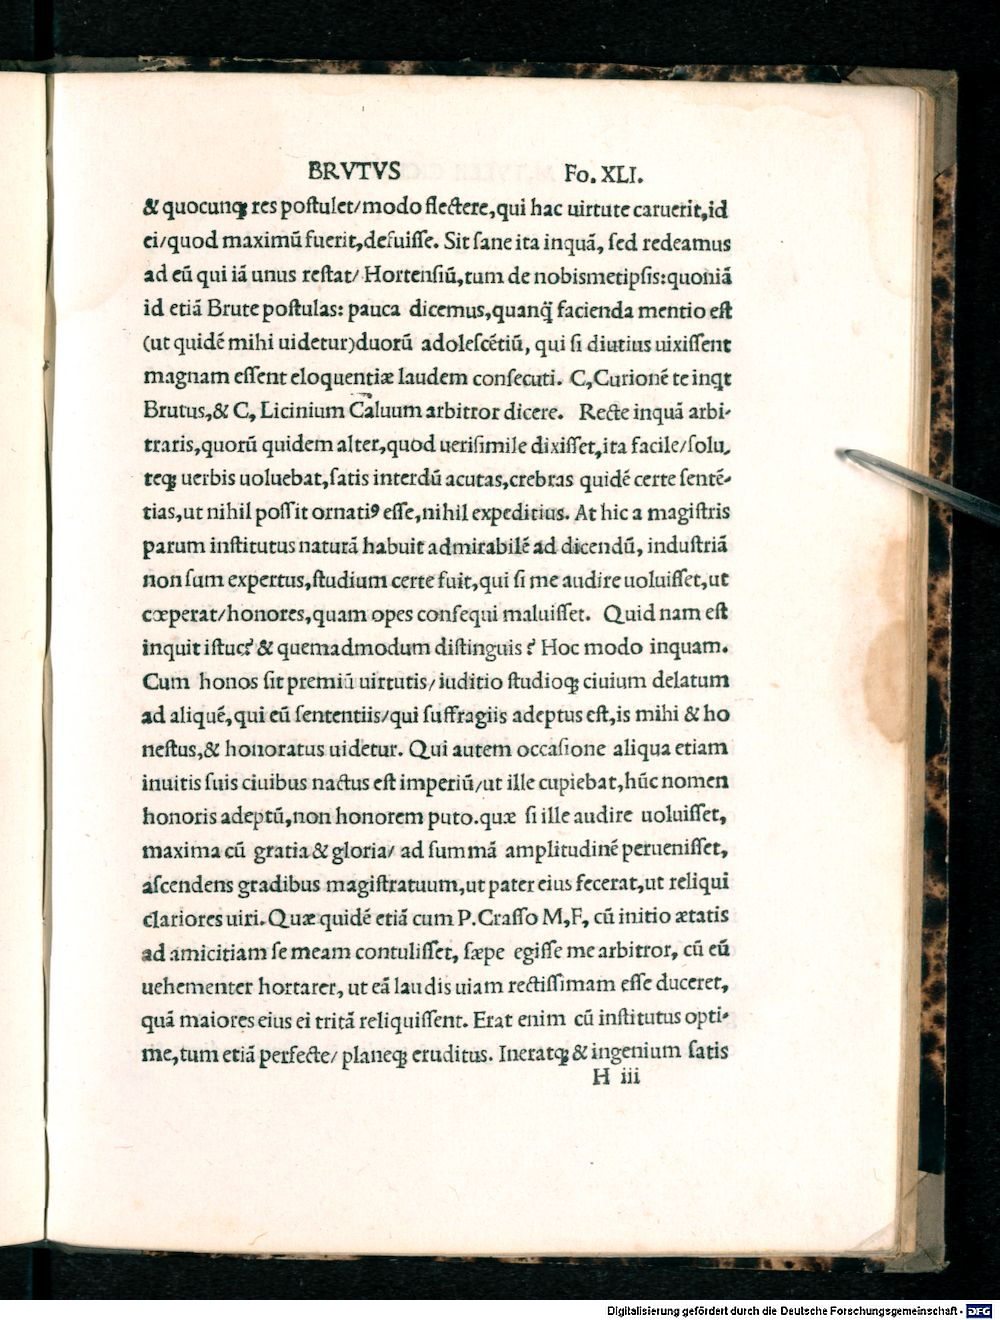 BRVTVS Fo. XLI.
& quocunqꝫ res poſtulet/modo flectere, qui hac uirtute caruerit, id
ei/quod maximū fuerit, defuiſſe. Sit ſane ita inquā, ſed redeamus
ad eū qui iā unus reſtat/ Hortenſiū, tum de nobismetipſis: quoniā
id etiā Brute poſtulas: pauca dicemus, quanq̄ facienda mentio eſt
(ut quidē mihi uidetur) duorū adoleſcētiū, qui ſi diutius uixiſſent
magnam eſſent eloquentiæ laudem conſecuti. C, Curionē te inqt
Brutus, & C, Licinium Caluum arbitror dicere. Recte inquā arbi-
traris, quorū quidem alter, quod ueriſimile dixiſſet, ita facile/ſolu,
teqꝫ uerbis uoluebat, ſatis interdū acutas, crebras quidē certe ſentē-
tias, ut nihil poſſit ornatiꝰ eſſe, nihil expeditius. At hic a magiſtris
parum inſtitutus naturā habuit admirabilē ad dicendū, induſtriā
non ſum expertus, ſtudium certe fuit, qui ſi me audire uoluiſſet, ut
cœperat/honores, quam opes conſequi maluiſſet. Quid nam eſt
inquit iſtuc? & quemadmodum diſtinguis? Hoc modo inquam.
Cum honos ſit premiū uirtutis/iuditio ſtudioqꝫ ciuium delatum
ad aliquē, qui eū ſententiis/qui ſuffragiis adeptus eſt, is mihi & ho
neſtus, & honoratus uidetur. Qui autem occaſione aliqua etiam
inuitis ſuis ciuibus nactus eſt imperiū/ut ille cupiebat, hūc nomen
honoris adeptū, non honorem puto. quæ ſi ille audire uoluiſſet,
maxima cū gratia & gloria/ ad ſummā amplitudinē perueniſſet,
aſcendens gradibus magiſtratuum, ut pater eius fecerat, ut reliqui
clariores uiri. Quæ quidē etiā cum P. Craſſo M, F, cū initio ætatis
ad amicitiam ſe meam contuliſſet, ſæpe egiſſe me arbitror, cū eū
uehementer hortarer, ut eā laudis uiam rectiſſimam eſſe duceret,
quā maiores eius ei tritā reliquiſſent. Erat enim cū inſtitutus opti-
me, tum etiā perfecte/ planeqꝫ eruditus. Ineratqꝫ & ingenium ſatis
H iii
Digitalisierung gefördert durch die Deutsche Forschungsgemeinschaft - DFG